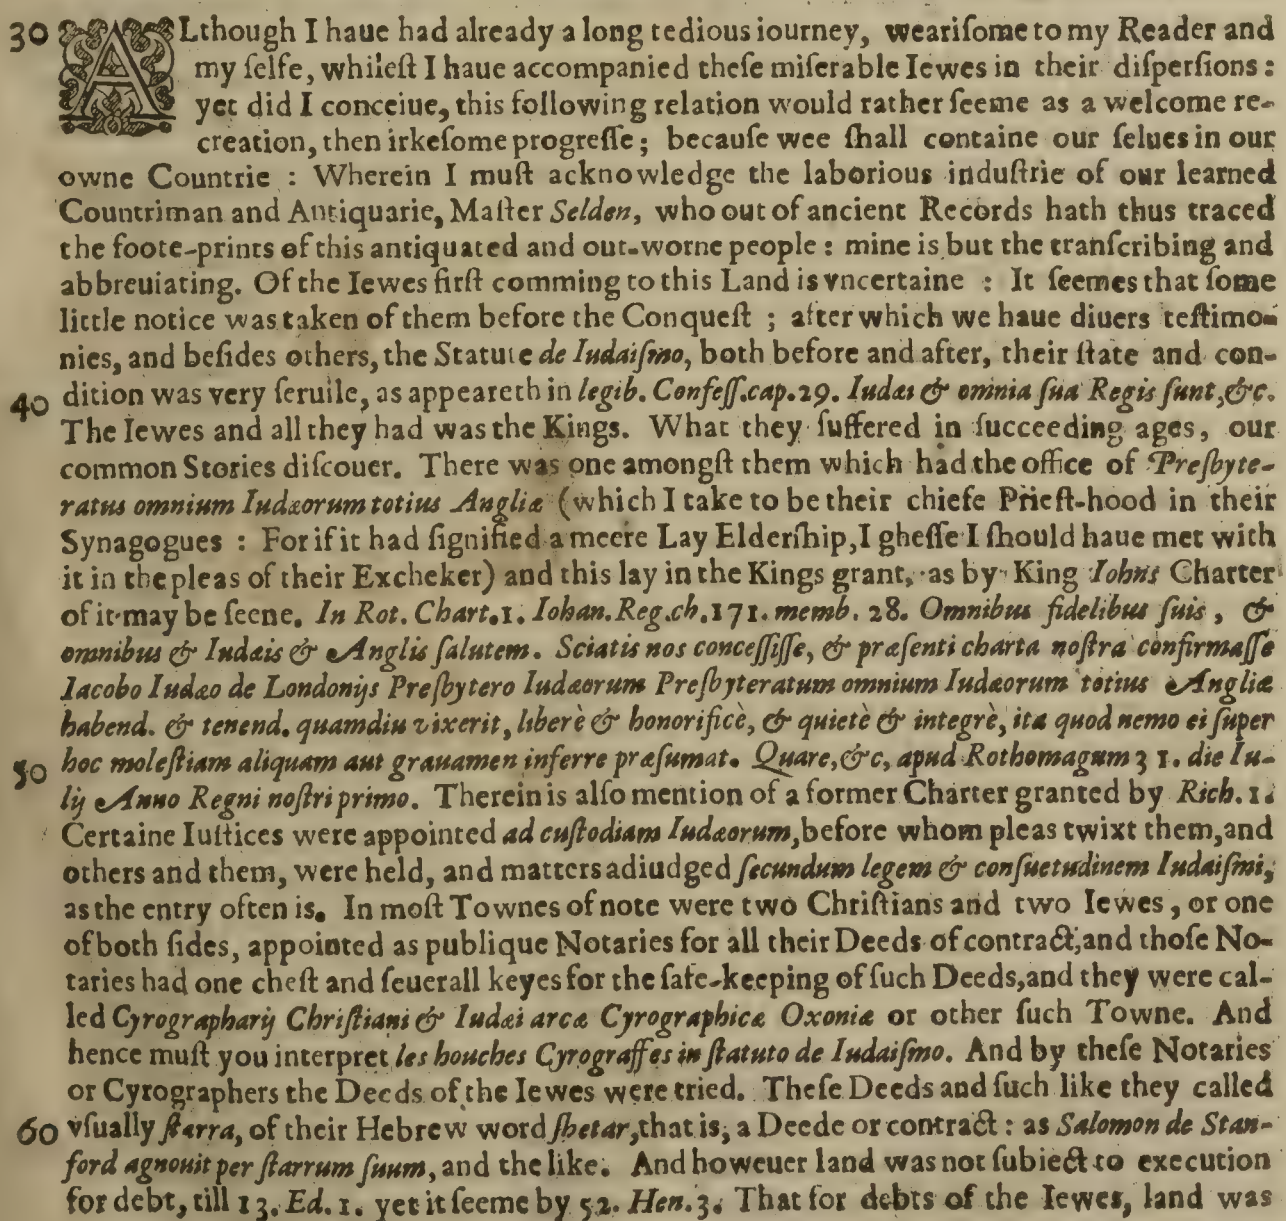 30 ALthough I haue had already a long tedious iourney, weariſome to my Reader and
my ſelfe, whileſt I haue accompanied theſe miſerable Iewes in their diſperſions:
yet did I conceiue, this following relation would rather ſeeme as a welcome re-
creation, then irkeſome progreſſe; becauſe wee ſhall containe our ſelues in our
owne Countrie : Wherein I muſt acknowledge the laborious induſtrie of our learned
Countriman and Antiquarie, Maſter Selden, who out of ancient Records hath thus traced
the foote-prints of this antiquated and out-worne people : mine is but the tranſcribing and
abbreuiating. Of the Iewes firſt comming to this Land is vncertaine : It ſeemes that ſome
little notice was taken of them before the Conqueſt ; after which we haue diuers teſtimo-
nies, and beſides others, the Statute de Iudaiſmo, both before and after, their ſtate and con-
40 dition was very ſeruile, as appeareth in legib. Confeſſ.cap.29. Iudæi & omnia ſua Regis ſunt,&c.
The Iewes and all they had was the Kings. What they ſuffered in ſucceeding ages, our
common Stories diſcouer. There was one amongſt them which had the office of Preſbyte-
ratus omnium Iudæorum totius Angliæ (which I take to be their chiefe Prieſt-hood in their
Synagogues : For if it had ſignified a meere Lay Elderſhip, I gheſſe I ſhould haue met with
it in the pleas of their Excheker) and this lay in the Kings grant, as by King Iohns Charter
of it may be ſeene. In Rot. Chart.1. Iohan.Reg.ch.171. memb. 28. Omnibus fidelibus ſuis, &
omnibus & Iudæis & Anglis ſalutem. Sciatis nos conceſſiſſe, & præſenti charta noſtra confirmaſſe
Iacobo Iudæo de Londonijs Preſbytero Iudæorum Preſbyteratum omnium Iudæorum totius Angliæ
habend. & tenend. quamdiu vixerit, liberè & honorificè, & quietè & integrè, ita quod nemo ei ſuper
50 hoc moleſtiam aliquam aut grauamen inferre præſumat. Quare,&c, apud Rothomagum 31. die Iu-
lij Anno Regni noſtri primo. Therein is alſo mention of a former Charter granted by Rich. 1.
Certaine Iuſtices were appointed ad cuſtodiam Iudæorum, before whom pleas twixt them, and
others and them, were held, and matters adiudged ſecundum legem & conſuetudinem Iudaiſmi,
as the entry often is. In moſt Townes of note were two Chriſtians and two Iewes, or one
of both ſides, appointed as publique Notaries for all their Deeds of contract, and thoſe No-
taries had one cheſt and ſeuerall keyes for the ſafe-keeping of ſuch Deeds, and they were cal-
led Cyrographarij Chriſtiani & Iudæi arcæ Cyrographicæ Oxoniæ or other ſuch Towne. And
hence muſt you interpret les houches Cyrograffes in ſtatuto de Iudaiſmo. And by theſe Notaries
or Cyrographers the Deeds of the Iewes were tried. Theſe Deeds and ſuch like they called
60 vſually ſtarra, of their Hebrew word ſhetar, that is, a Deede or contract : as Salomon de Stan-
ford agnouit per ſtarrum ſuum, and the like. And howeuer land was not ſubiect to execution
for debt, till 13. Ed. 1. yet it ſeeme by 52. Hen. 3. That for debts of the Iewes, land was